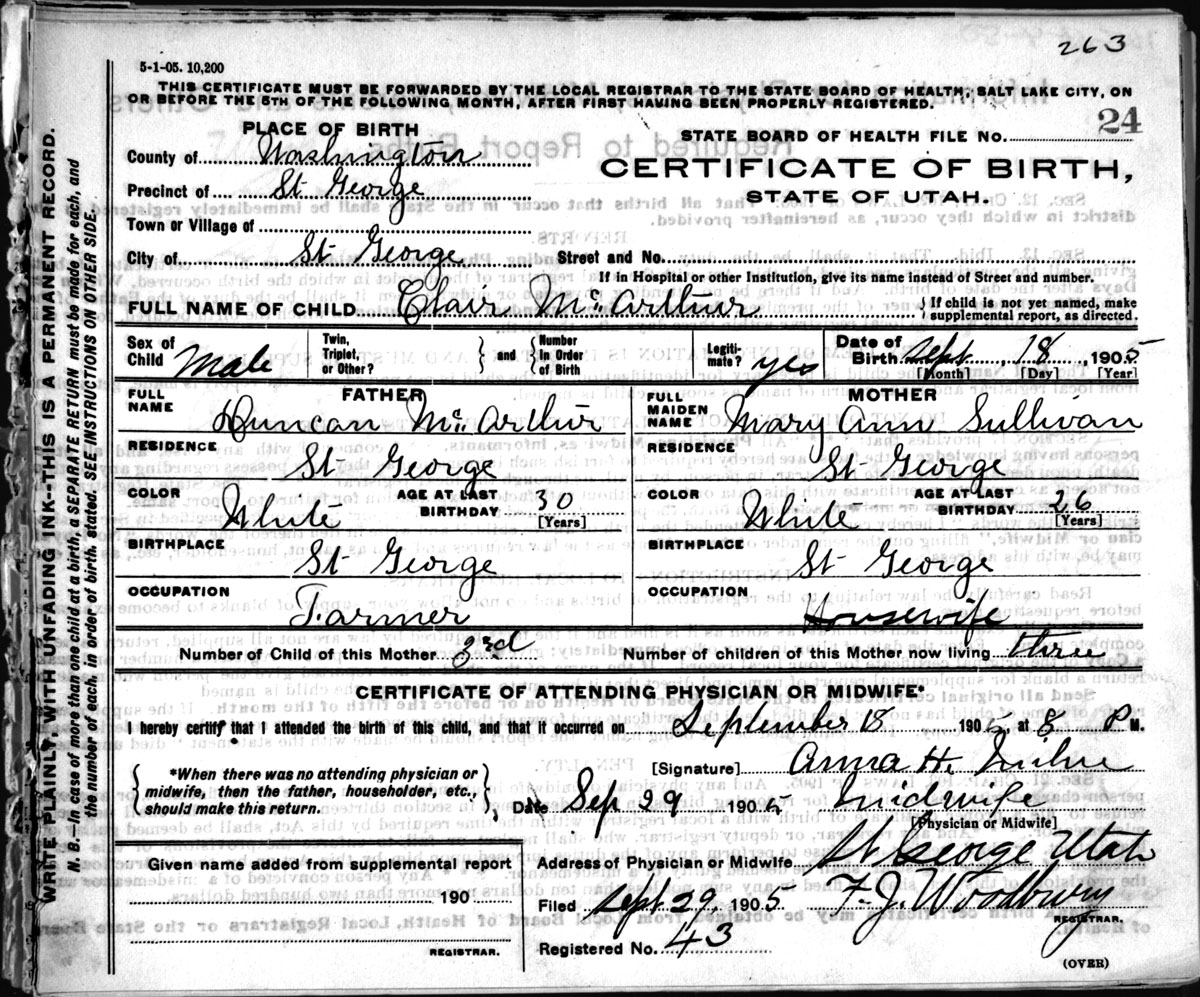 263
5-1-05. 10,200
THIS CERTIFICATE MUST BE FORWARDED BY THE LOCAL REGISTRAR TO THE STATE BOARD OF HEALTH, SALT LAKE CITY, ON
OR BEFORE THE 5TH OF THE FOLLOWING MONTH, AFTER FIRST HAVING BEEN PROPERLY REGISTERED.
PLACE OF BIRTH
STATE BOARD OF HEALTH FILE NO. 24
County of Washington
CERTIFICATE OF BIRTH,
Precinct of St George
STATE OF UTAH.
Town or Village of
City of St George Street and No.
If in Hospital or other Institution, give its name instead of Street and number.
FULL NAME OF CHILD Clair McArthur { If child is not yet named, make supplemental report, as directed.
Sex of Child Male Twin, Triplet, or Other? } and { Number In Order of Birth Legiti-mate? yes Date of Birth Sept. 18, 1905
[Month] [Day] [Year]
FATHER MOTHER
FULL NAME Duncan McArthur FULL MAIDEN NAME Mary Ann Sullivan
RESIDENCE St George RESIDENCE St George
COLOR White AGE AT LAST BIRTHDAY 30 [Years] COLOR White AGE AT LAST BIRTHDAY 26 [Years]
BIRTHPLACE St George BIRTHPLACE St George
OCCUPATION Farmer OCCUPATION Housewife
Number of Child of this Mother 3rd Number of children of this Mother now living three
CERTIFICATE OF ATTENDING PHYSICIAN OR MIDWIFE*
I hereby certify that I attended the birth of this child, and that it occurred on September 18 1905, at 8 P M.
[Signature] Anna H. Milne
*When there was no attending physician or midwife, then the father, householder, etc., should make this return.
Date Sep 29 1905 Midwife
[Physician or Midwife]
Given name added from supplemental report
190
REGISTRAR.
Address of Physician or Midwife St George Utah
Filed Sept 29, 1905 F. J. Woodbury
REGISTRAR.
Registered No. 43
(OVER)
WRITE PLAINLY, WITH UNFADING INK--THIS IS A PERMANENT RECORD.
N. B.--In case of more than one child at a birth, a SEPARATE RETURN must be made for each, and
the number of each, in order of birth, stated. SEE INSTRUCTIONS ON OTHER SIDE.